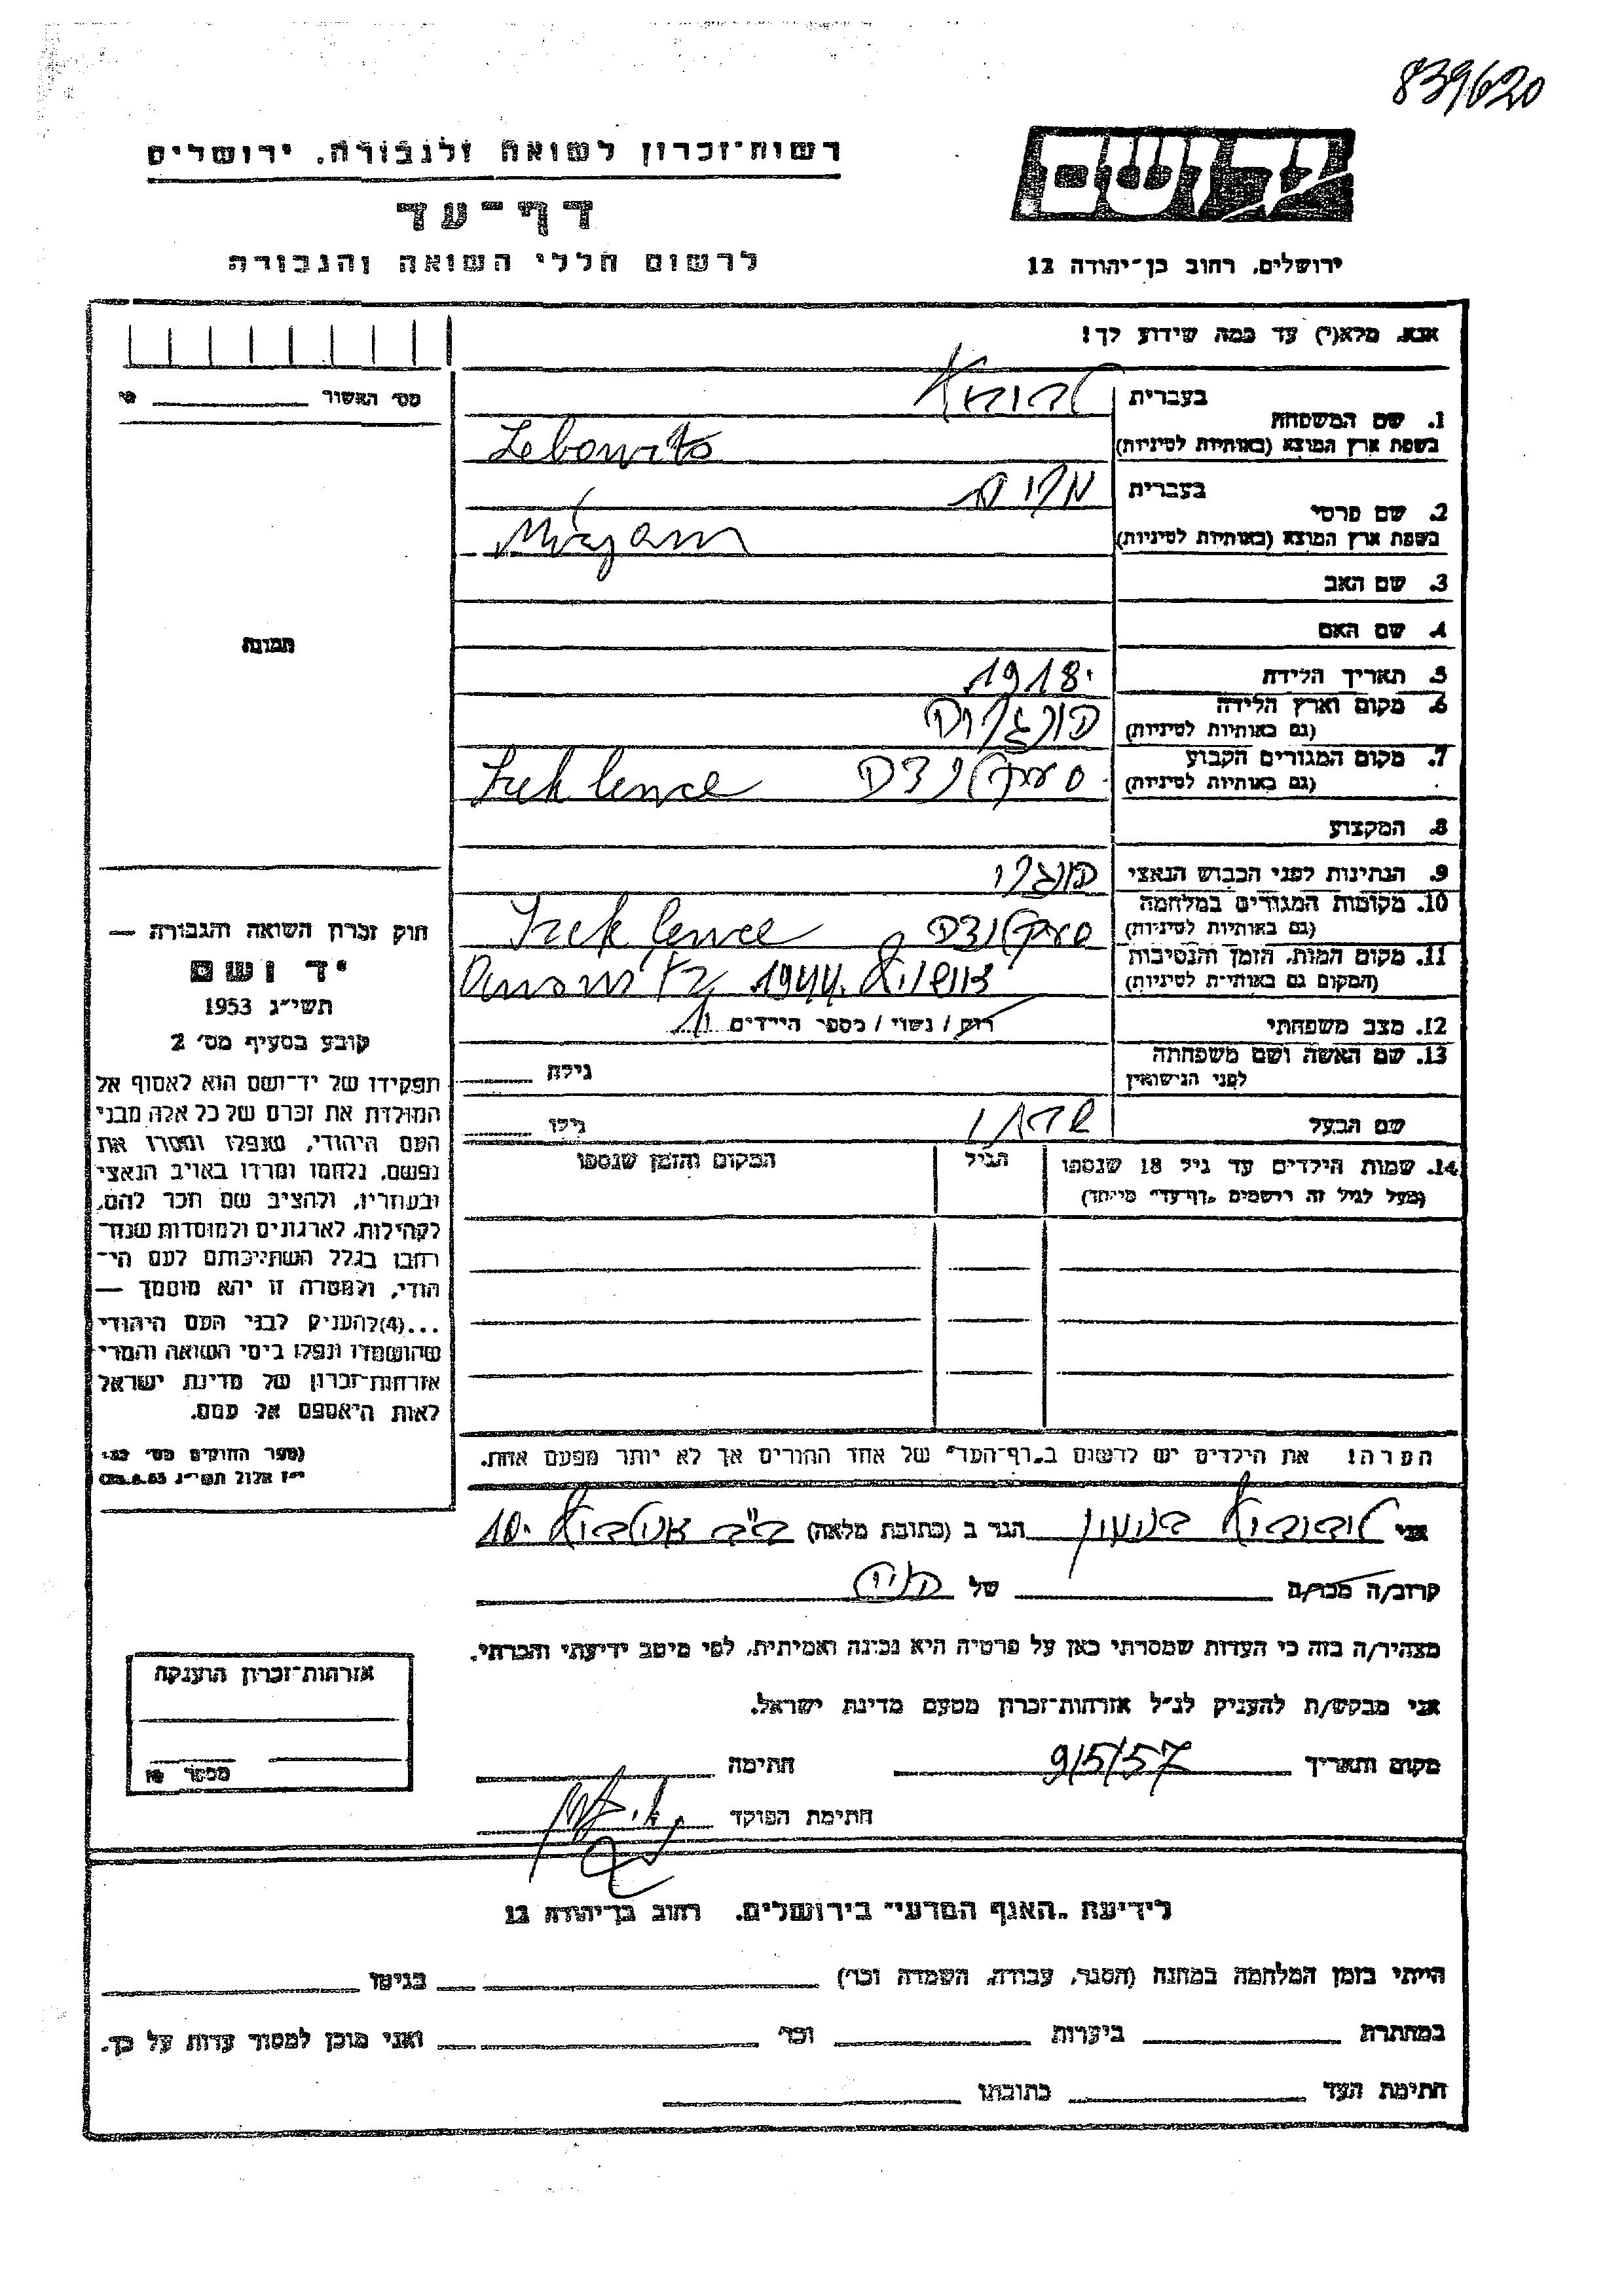 839620
רשות־זכרון לשואה ולגבורה. ירושלים
דף־עד
לרשום חללי השואה והגבורה
יד ושם
ירושלים. רחוב בן־יהודה 12
אנא. מלא(י) עד כמה שידוע לך!
מס׳ האשור
1. שם המשפחה
בעברית
בשפת ארץ המוצא (באותיות לטיניות) Lebowits
2. שם פרטי
בעברית מרים
בשפת ארץ המוצא (באותיות לטיניות) Mirjam
3. שם האב
4. שם האם
תמונה
5. תאריך הלידה 1918.
6. מקום וארץ הלידה הונגריה
(גם באותיות לטיניות)
7. מקום המגורים הקבוע
(גם באותיות לטיניות) Szeklence
8. המקצוע
9. הנתינות לפני הכבוש הנאצי הונגרי
10. מקומות המגורים במלחמה
(גם באותיות לטיניות) Szeklence
11. מקום המות. הזמן והנסיבות
(המקום גם באותיות לטיניות) אושוויץ 1944.
12. מצב משפחתי רווק / נשוי / מספר הילדים
13. שם האשה ושם משפחתה
לפני הנישואין
גילה
שם הבעל
גילו
14. שמות הילדים עד גיל 18 שנספו
(מעל לגיל זה רושמים „דף־עד״ מיוחד)
הגיל
המקום והזמן שנספו
הערה! את הילדים יש לרשום ב„דף־העד״ של אחד ההורים אך לא יותר מפעם אחת.
חוק זכרון השואה והגבורה —
יד ושם
תשי״ג 1953
קובע בסעיף מס׳ 2
תפקידו של יד־ושם הוא לאסוף אל
המולדת את זכרם של כל אלה מבני
העם היהודי, שנפלו ומסרו את
נפשם, נלחמו ומרדו באויב הנאצי
ובעוזריו, ולהציב שם וזכר להם,
לקהילות, לארגונים ולמוסדות שנח־
רבו בגלל השתייכותם לעם הי־
הודי, ולמטרה זו יהא מוסמך —
...(4) להעניק לבני העם היהודי
שהושמדו ונפלו בימי השואה והמרי
אזרחות־זכרון של מדינת ישראל
לאות היאספם אל עמם.
(ספר החוקים מס׳ 132
י״ז אלול תשי״ג 28.8.53)
אני לבוביץ הגר ב (כתובת מלאה)
קרוב/ה מכר/ה של
מצהיר/ה בזה כי העדות שמסרתי כאן על פרטיה היא נכונה ואמיתית. לפי מיטב ידיעתי והכרתי.
אני מבקש/ת להעניק לנ״ל אזרחות־זכרון מטעם מדינת ישראל.
מקום ותאריך 9/5/57 חתימה
חתימת הפוקד
אזרחות־זכרון הוענקה
מספר
לידיעת „האגף המדעי״ בירושלים. רחוב בן־יהודה 12
הייתי בזמן המלחמה במחנה (הסגר, עבודה, השמדה וכו׳) בגיטו
במחתרת ביערות וכו׳ ואני מוכן למסור עדות על כך.
חתימת העד כתובתו